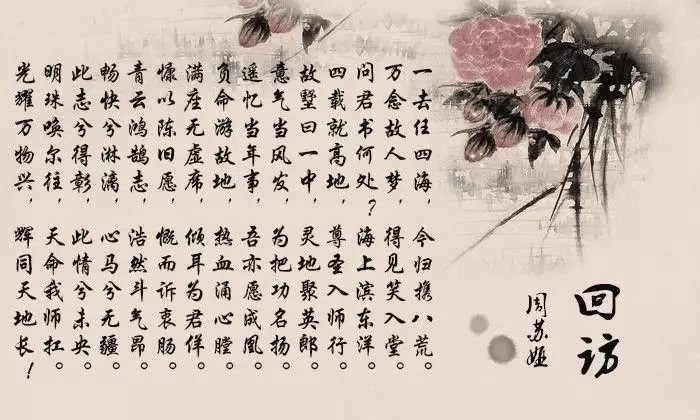 回访
周苏娅
一去任四海，今归携八荒。
万念故人梦，得见笑入堂。
问君书何处？海上滨东洋。
四载就高地，尊圣入师行。
故墅曰一中，灵地聚英郎。
意气当风发，为把功名扬。
遥忆当年事，吾亦愿成凰。
负命游故地，热血涌心膛。
满座无虚席，倾耳为君佯。
慷以陈旧愿，慨而诉衷肠。
青云鸿鹄志，浩然斗气昂。
畅快兮淋漓，心马兮无疆。
此志兮得彰，此情兮未央。
明珠唤尔往，天命我师扛。
光耀万物兴，辉同天地长！